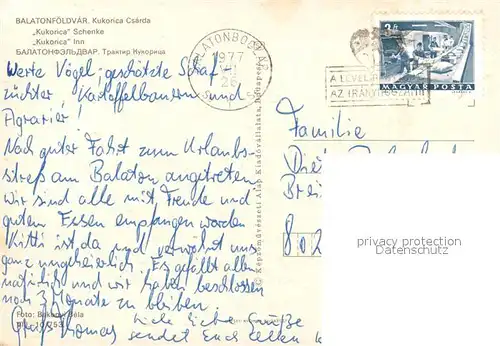 BALATONFÖLDVÁR. Kukorica Csárda
„Kukorica" Schenke
„Kukorica" Inn
БАЛАТОНФЭЛЬДВАР. Трактир Кукорица
BALATONBOGLÁR
1977
MAGYAR POSTA
2 Ft
A LEVÉL
AZ IRÁNYÍTÓSZÁM
Werte Vögel; geschätzte Schaf-
züchter Kartoffelbauern und
Agrarier!
Nach guter Fahrt zum Urlaubs-
streß am Balaton angetreten
Wir sind alle mit Freude und
gutem Essen empfangen worden
Kitti ist da und verwöhnt uns
ganz ungeheuerlich. Es gefällt allen
natürlich und wir haben beschlossen
noch 3 Monate zu bleiben.
Gruß Thomas
Viele liebe Grüße
sendet Euch allen
Familie
802
Képzőművészeti Alap Kiadóvállalata, Budapest
Foto: Bakonyi Béla
privacy protection
www.Dafinatier.com